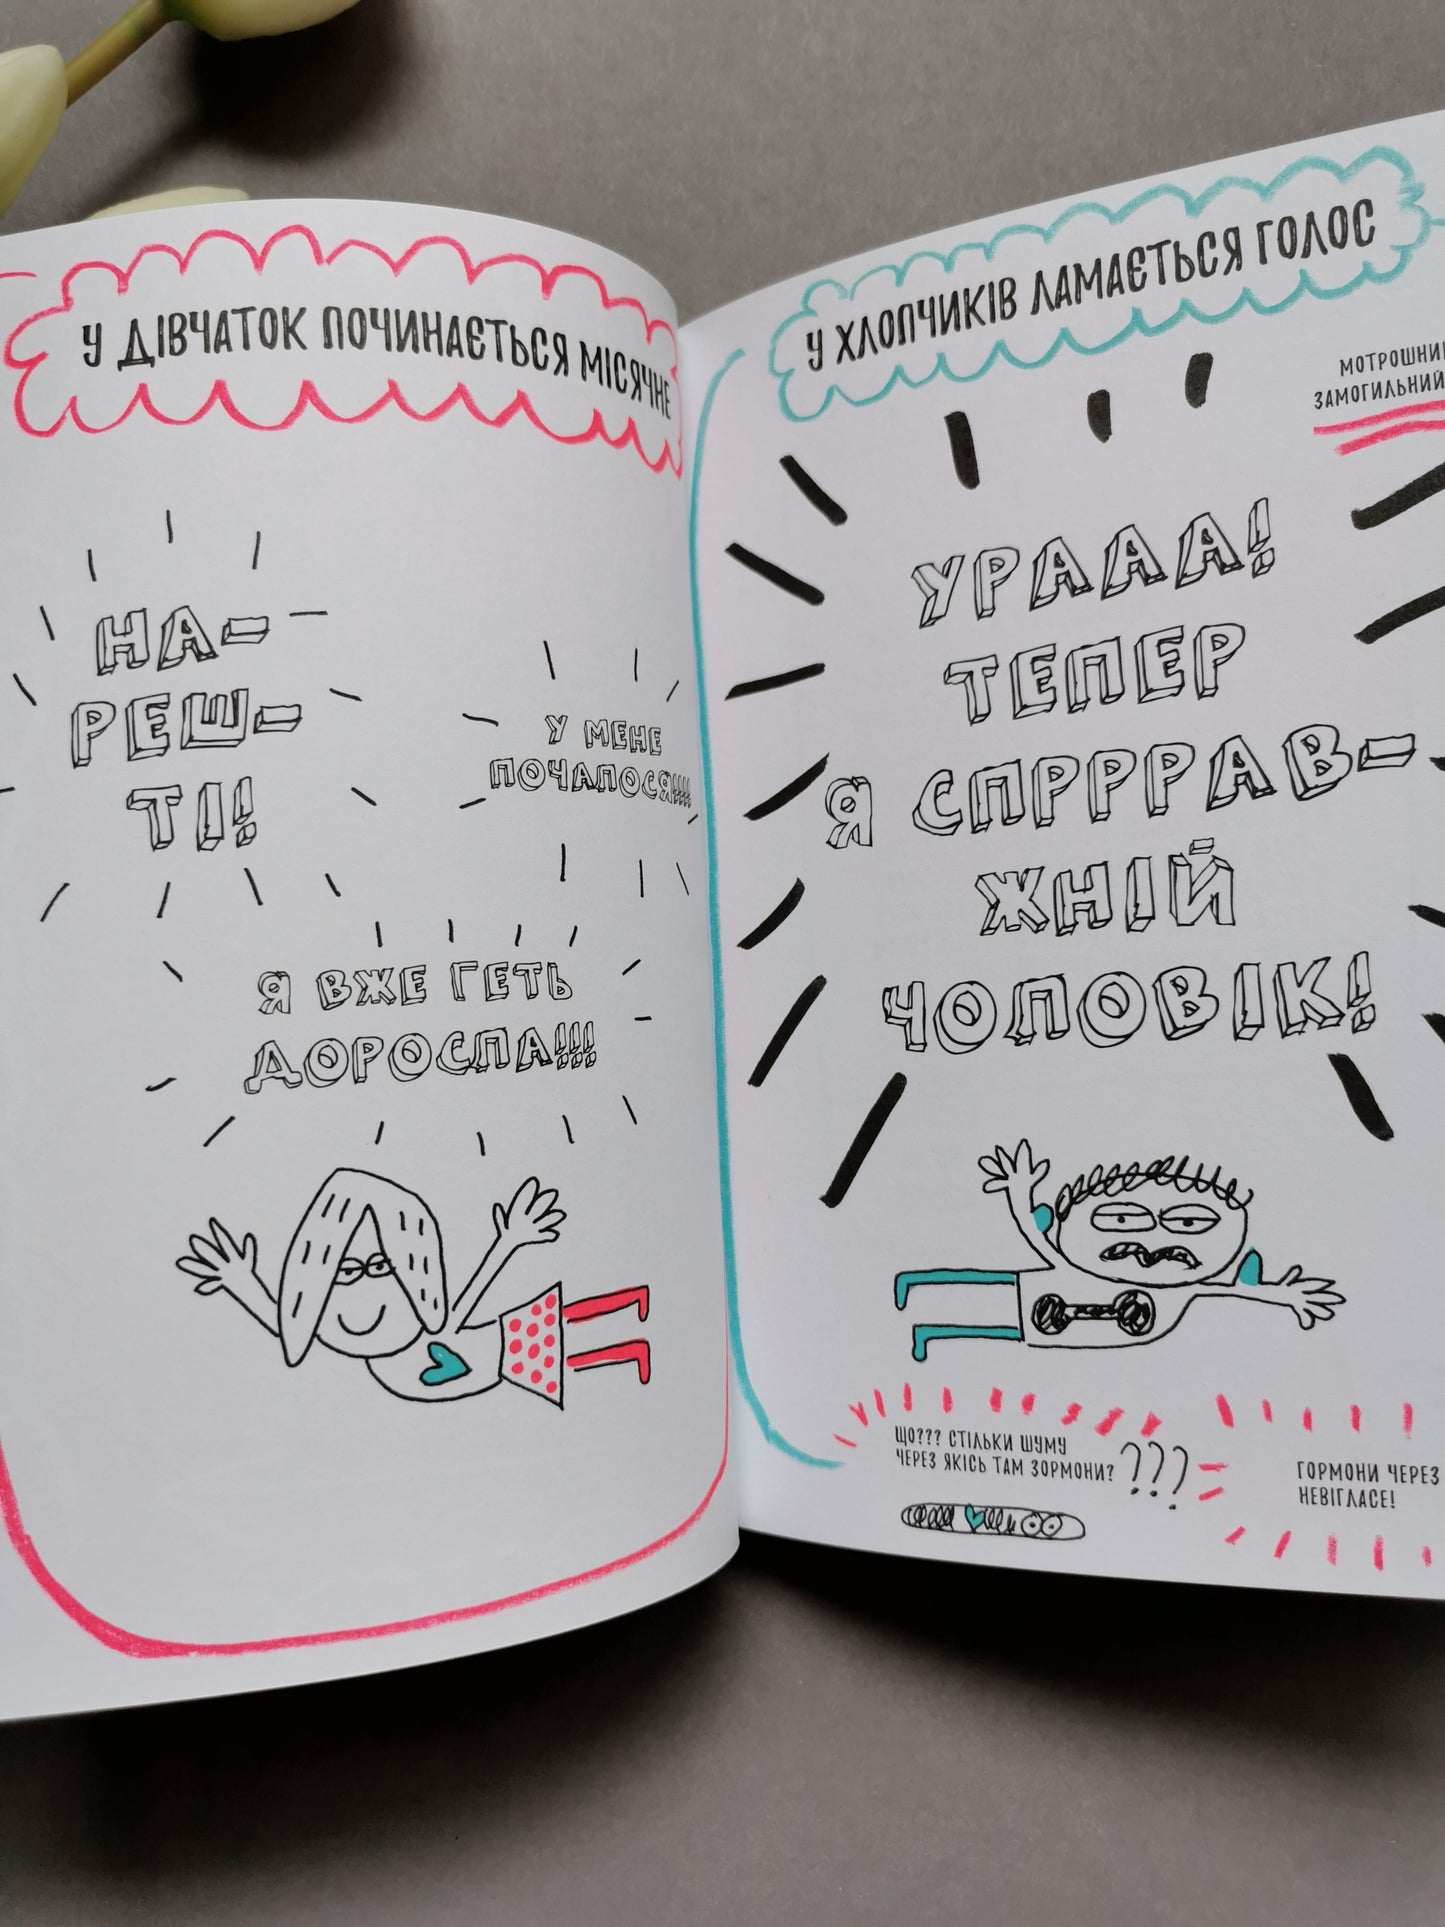 У ДІВЧАТОК ПОЧИНАЄТЬСЯ МІСЯЧНЕ
НА-
РЕШ-
ТІ!
У МЕНЕ
ПОЧАЛОСЯ!!!!
Я ВЖЕ ГЕТЬ
ДОРОСЛА!!!
У ХЛОПЧИКІВ ЛАМАЄТЬСЯ ГОЛОС
МОТРОШНИЙ
ЗАМОГИЛЬНИЙ
УРААА!
ТЕПЕР
Я СПРРРАВ-
ЖНІЙ
ЧОЛОВІК!
ЩО??? СТІЛЬКИ ШУМУ
ЧЕРЕЗ ЯКІСЬ ТАМ ЗОРМОНИ?
???
ГОРМОНИ ЧЕРЕЗ
НЕВІГЛАСЕ!